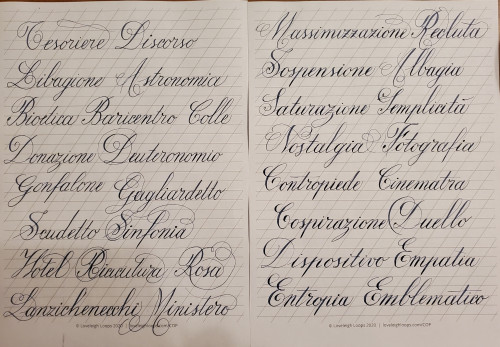 Tesoriere Discorso
Libagione Astronomica
Bioetica Baricentro Colle
Donazione Deuteronomio
Gonfalone Gagliardetto
Scudetto Sinfonia
Hotel Riacutura Rosa
Lanzichenecchi Ministero
© Loveleigh Loops 2020 | loveleighloops.com/LTSP
Massimizzazione Recluta
Sospensione Albagia
Saturazione Semplicità
Nostalgia Fotografia
Contropiede Cinematra
Cospirazione Duello
Dispositivo Empatia
Entropia Emblematico
© Loveleigh Loops 2020 | loveleighloops.com/LTSP